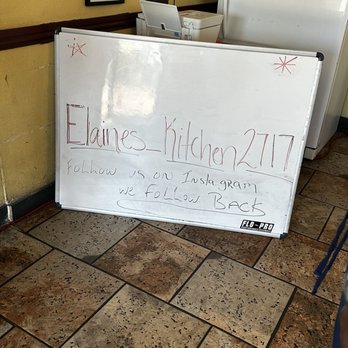 Elaines_Kitchen2717
Follow us on Instagram
we follow Back
FLO-PRO